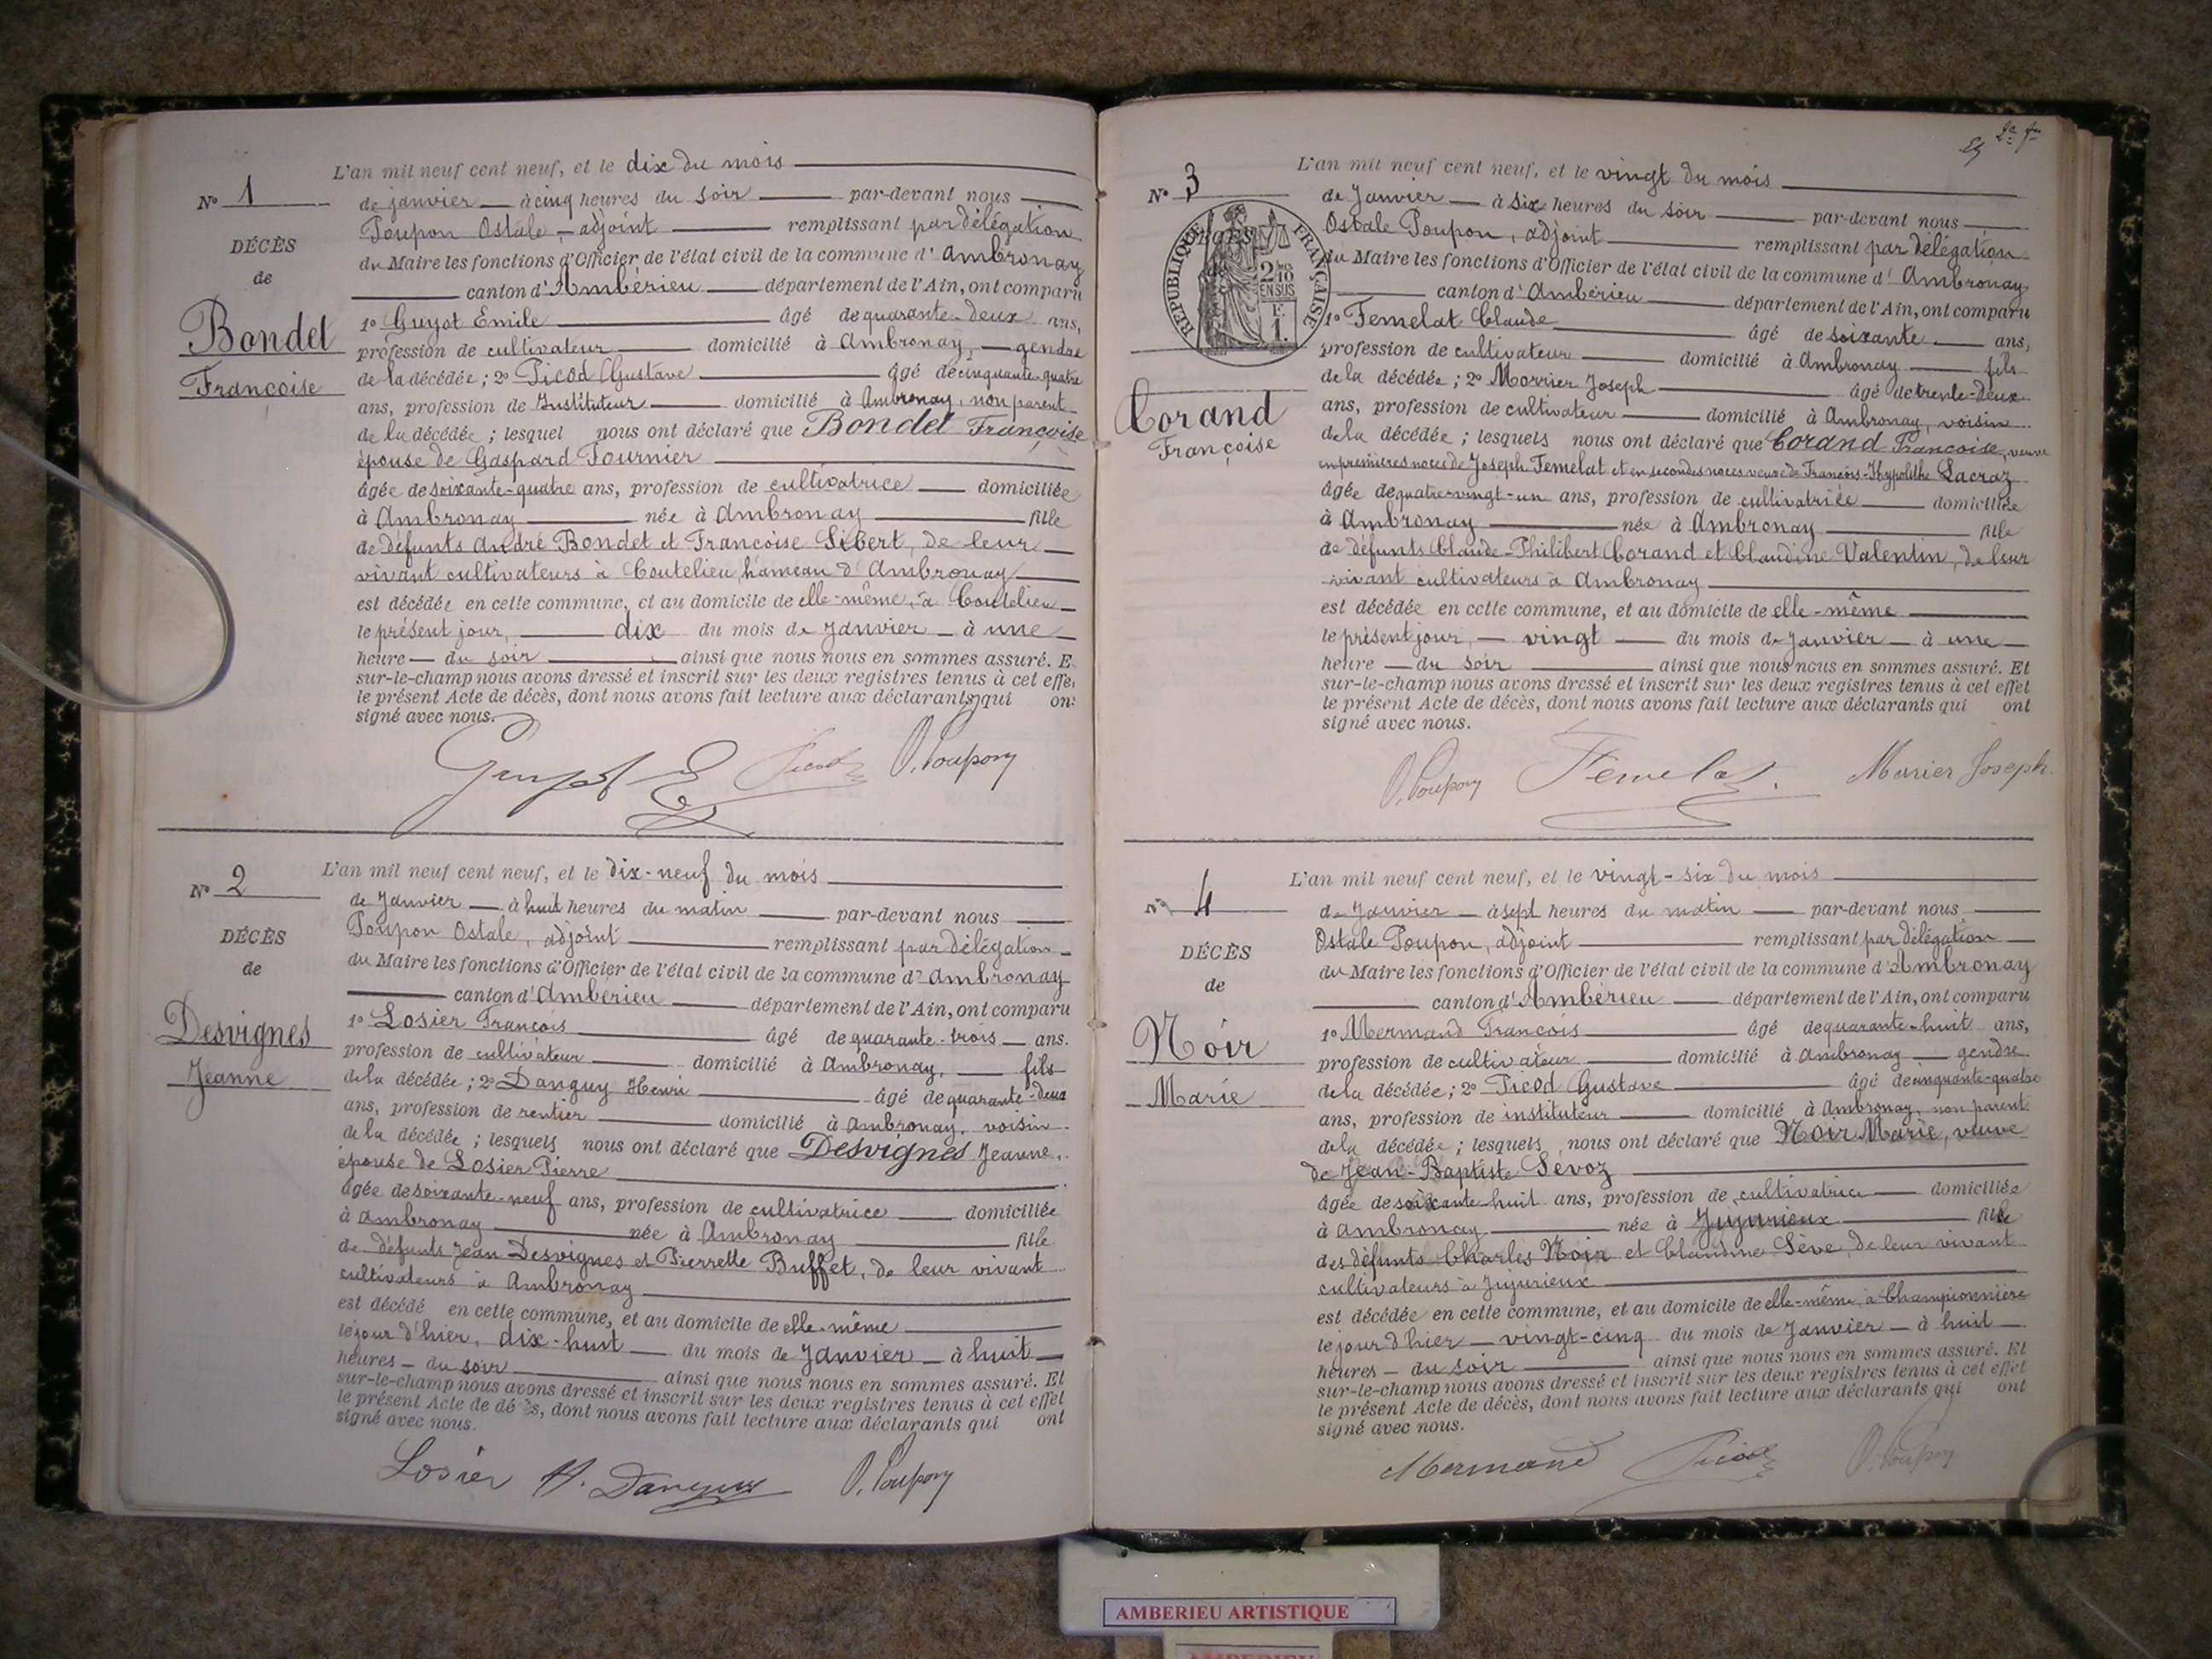 N° 1
DÉCÈS
de
Bondet
Françoise
L'an mil neuf cent neuf, et le dix du mois
de janvier à cinq heures du soir par-devant nous
Poupon Ostale, adjoint remplissant par délégation
du Maire les fonctions d'Officier de l'état civil de la commune d'Ambronay
canton d'Ambérieu département de l'Ain, ont comparu
1° Guyot Emile âgé de quarante-deux ans,
profession de cultivateur domicilié à Ambronay, gendre
de la décédée; 2° Picod Gustave âgé de cinquante-quatre
ans, profession de Instituteur domicilié à Ambronay, non parent
de la décédée; lesquel nous ont déclaré que Bondet Françoise
épouse de Gaspard Fournier
âgée de soixante-quatre ans, profession de cultivatrice domiciliée
à Ambronay née à Ambronay fille
de défunts André Bondet et Françoise Sibert, de leur
vivant cultivateurs à Coutelieu, hameau d'Ambronay
est décédée en cette commune, et au domicile de elle-même, à Coutelieu
le présent jour, dix du mois de Janvier à une
heure du soir ainsi que nous nous en sommes assuré. E
sur-le-champ nous avons dressé et inscrit sur les deux registres tenus à cet effe
le présent Acte de décès, dont nous avons fait lecture aux déclarants, qui on
signé avec nous.
Guyot E Picod O. Poupon
N° 2
DÉCÈS
de
Desvignes
Jeanne
L'an mil neuf cent neuf, et le dix-neuf du mois
de Janvier à huit heures du matin par-devant nous
Poupon Ostale, adjoint remplissant par délégation
du Maire les fonctions d'Officier de l'état civil de la commune d'Ambronay
canton d'Ambérieu département de l'Ain, ont comparu
1° Losier François âgé de quarante-trois ans.
profession de cultivateur domicilié à Ambronay, fils
de la décédée; 2° Danguy Henri âgé de quarante-deux
ans, profession de rentier domicilié à Ambronay, voisin
de la décédée; lesquels nous ont déclaré que Desvignes Jeanne,
épouse de Losier Pierre
âgée de soixante-neuf ans, profession de cultivatrice domiciliée
à Ambronay née à Ambronay fille
de défunts Jean Desvignes et Pierrette Buffet, de leur vivant
cultivateurs à Ambronay
est décédé en cette commune, et au domicile de elle-même
le jour d'hier, dix-huit du mois de Janvier à huit
heures du soir ainsi que nous nous en sommes assuré. Et
sur-le-champ nous avons dressé et inscrit sur les deux registres tenus à cet effet
le présent Acte de décès, dont nous avons fait lecture aux déclarants qui ont
signé avec nous.
Losier H. Danguy O. Poupon
2e fe
N° 3
RÉPUBLIQUE FRANÇAISE
2/10
EN SUS
F.
1.
Corand
Françoise
L'an mil neuf cent neuf, et le vingt du mois
de Janvier à six heures du soir par-devant nous
Ostale Poupon, adjoint remplissant par délégation
du Maire les fonctions d'Officier de l'état civil de la commune d'Ambronay
canton d'Ambérieu département de l'Ain, ont comparu
1° Femelat Claude âgé de soixante ans,
profession de cultivateur domicilié à Ambronay fils
de la décédée; 2° Morrier Joseph âgé de trente-deux
ans, profession de cultivateur domicilié à Ambronay, voisin
de la décédée; lesquels nous ont déclaré que Corand Françoise, veuve
en premières noces de Joseph Femelat et en secondes noces veuve de François-Hypolithe Lacraz
âgée de quatre-vingt-un ans, profession de cultivatrice domiciliée
à Ambronay née à Ambronay fille
de défunts Claude-Philibert Corand et Claudine Valentin, de leur
vivant cultivateurs à Ambronay
est décédée en cette commune, et au domicile de elle-même
le présent jour, vingt du mois de Janvier à une
heure du soir ainsi que nous nous en sommes assuré. Et
sur-le-champ nous avons dressé et inscrit sur les deux registres tenus à cet effet
le présent Acte de décès, dont nous avons fait lecture aux déclarants qui ont
signé avec nous.
O. Poupon Femelat Morier Joseph.
N° 4
DÉCÈS
de
Noir
Marie
L'an mil neuf cent neuf, et le vingt-six du mois
de Janvier à sept heures du matin par-devant nous
Ostale Poupon, adjoint remplissant par délégation
du Maire les fonctions d'Officier de l'état civil de la commune d'Ambronay
canton d'Ambérieu département de l'Ain, ont comparu
1° Mermand François âgé de quarante-huit ans,
profession de cultivateur domicilié à Ambronay gendre
de la décédée; 2° Picod Gustave âgé de cinquante-quatre
ans, profession de instituteur domicilié à Ambronay, non parent
de la décédée; lesquels nous ont déclaré que Noir Marie, veuve
de Jean-Baptiste Sevoz
âgée de soixante huit ans, profession de cultivatrice domiciliée
à Ambronay née à Jujurieux fille
des défunts Charles Noir et Claudine Sève, de leur vivant
cultivateurs à Jujurieux
est décédée en cette commune, et au domicile de elle-même, à Championnière
le jour d'hier vingt-cinq du mois de Janvier à huit
heures du soir ainsi que nous nous en sommes assuré. Et
sur-le-champ nous avons dressé et inscrit sur les deux registres tenus à cet effet
le présent Acte de décès, dont nous avons fait lecture aux déclarants qui ont
signé avec nous.
Mermand Picod O. Poupon
AMBERIEU ARTISTIQUE
AMBERIEU